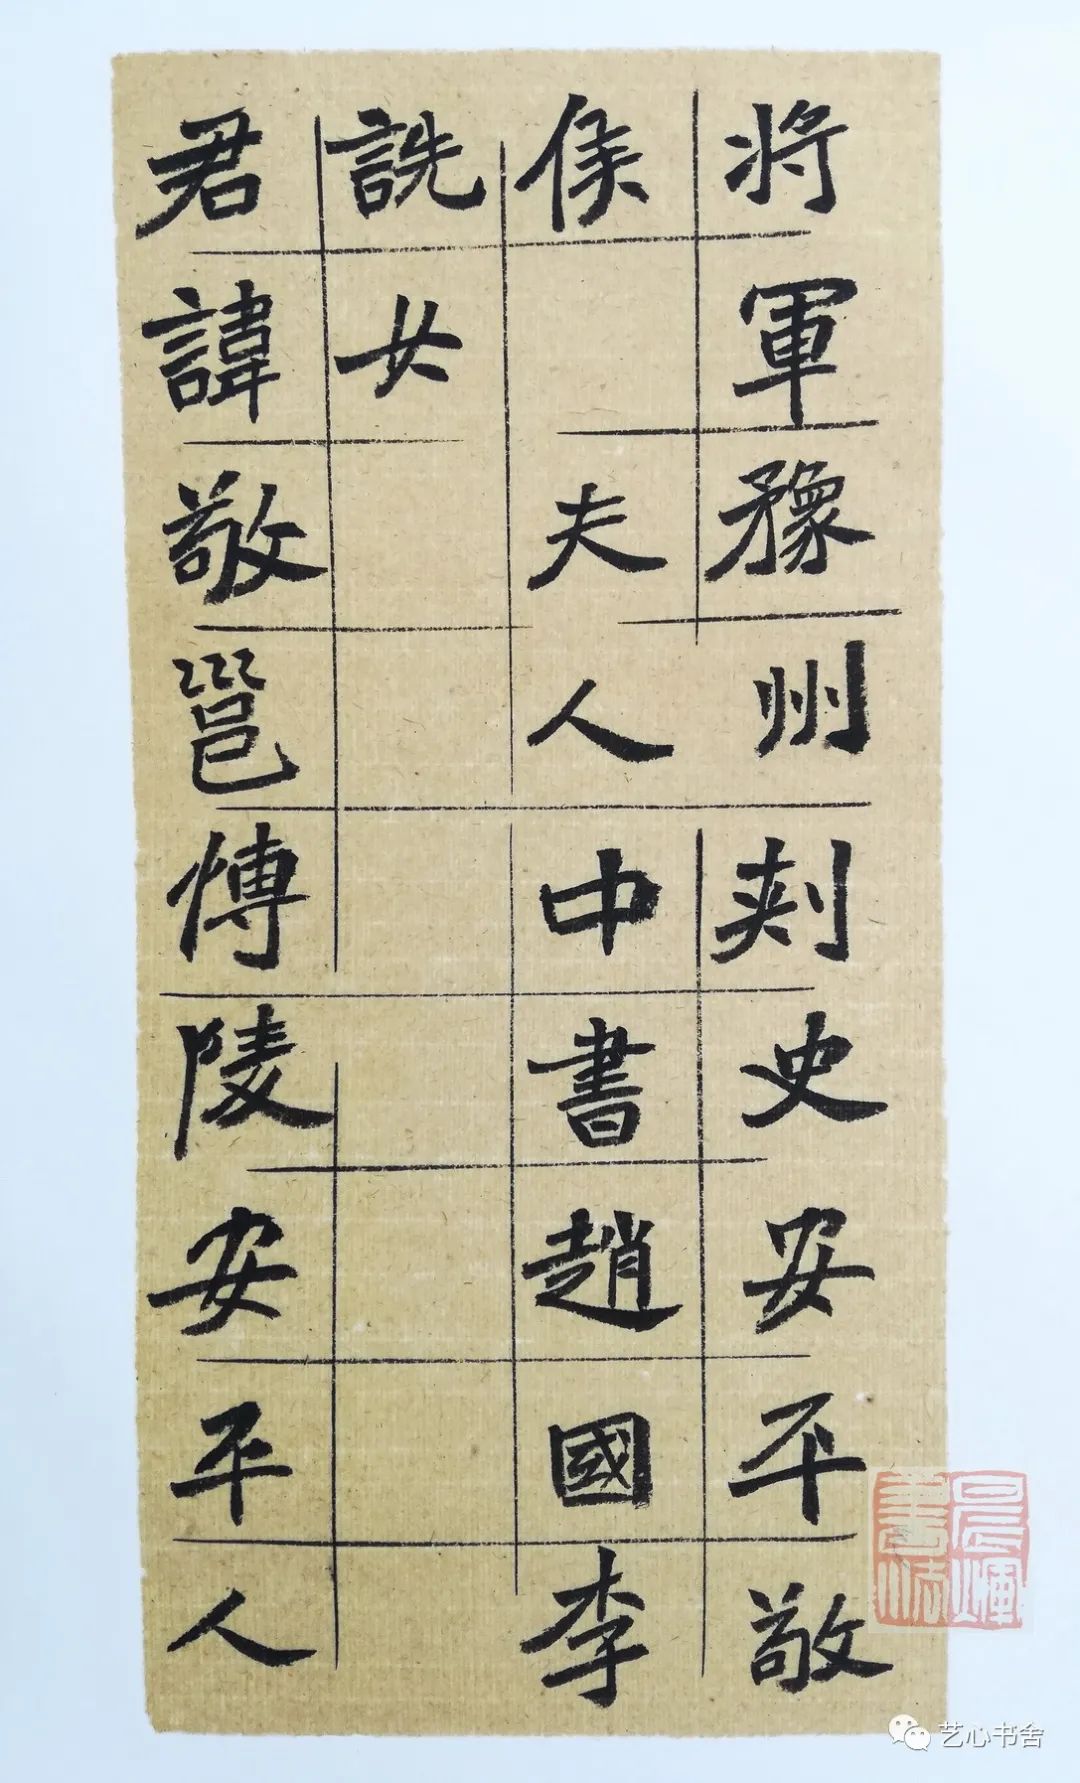 將軍豫州刾史安平敬
侯夫人中書趙國李
詵女
君諱敬邕博陵安平人
艺心书舍